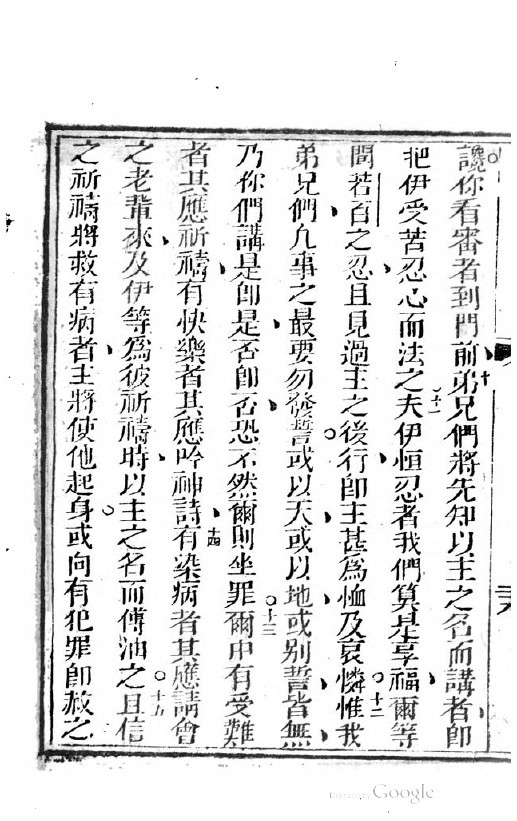 讒你看審者到門前十弟兄們將先知以主之名而講者即
把伊受苦忍心而法之十一夫伊恒忍者我們算是享福爾等
聞若百之忍且見過主之後行即主甚為恤及哀憐十二惟我
弟兄們凡事之最要勿發誓或以天或以地或別誓皆無
乃你們講是即是否即否恐不然爾則坐罪十三爾中有受難
者其應祈禱有快樂者其應吟神詩十四有染病者其應請會
之老輩來及伊等為彼祈禱時以主之名而傅油之十五且信
之祈禱將救有病者主將使他起身或向有犯罪即赦之
Digitized by Google